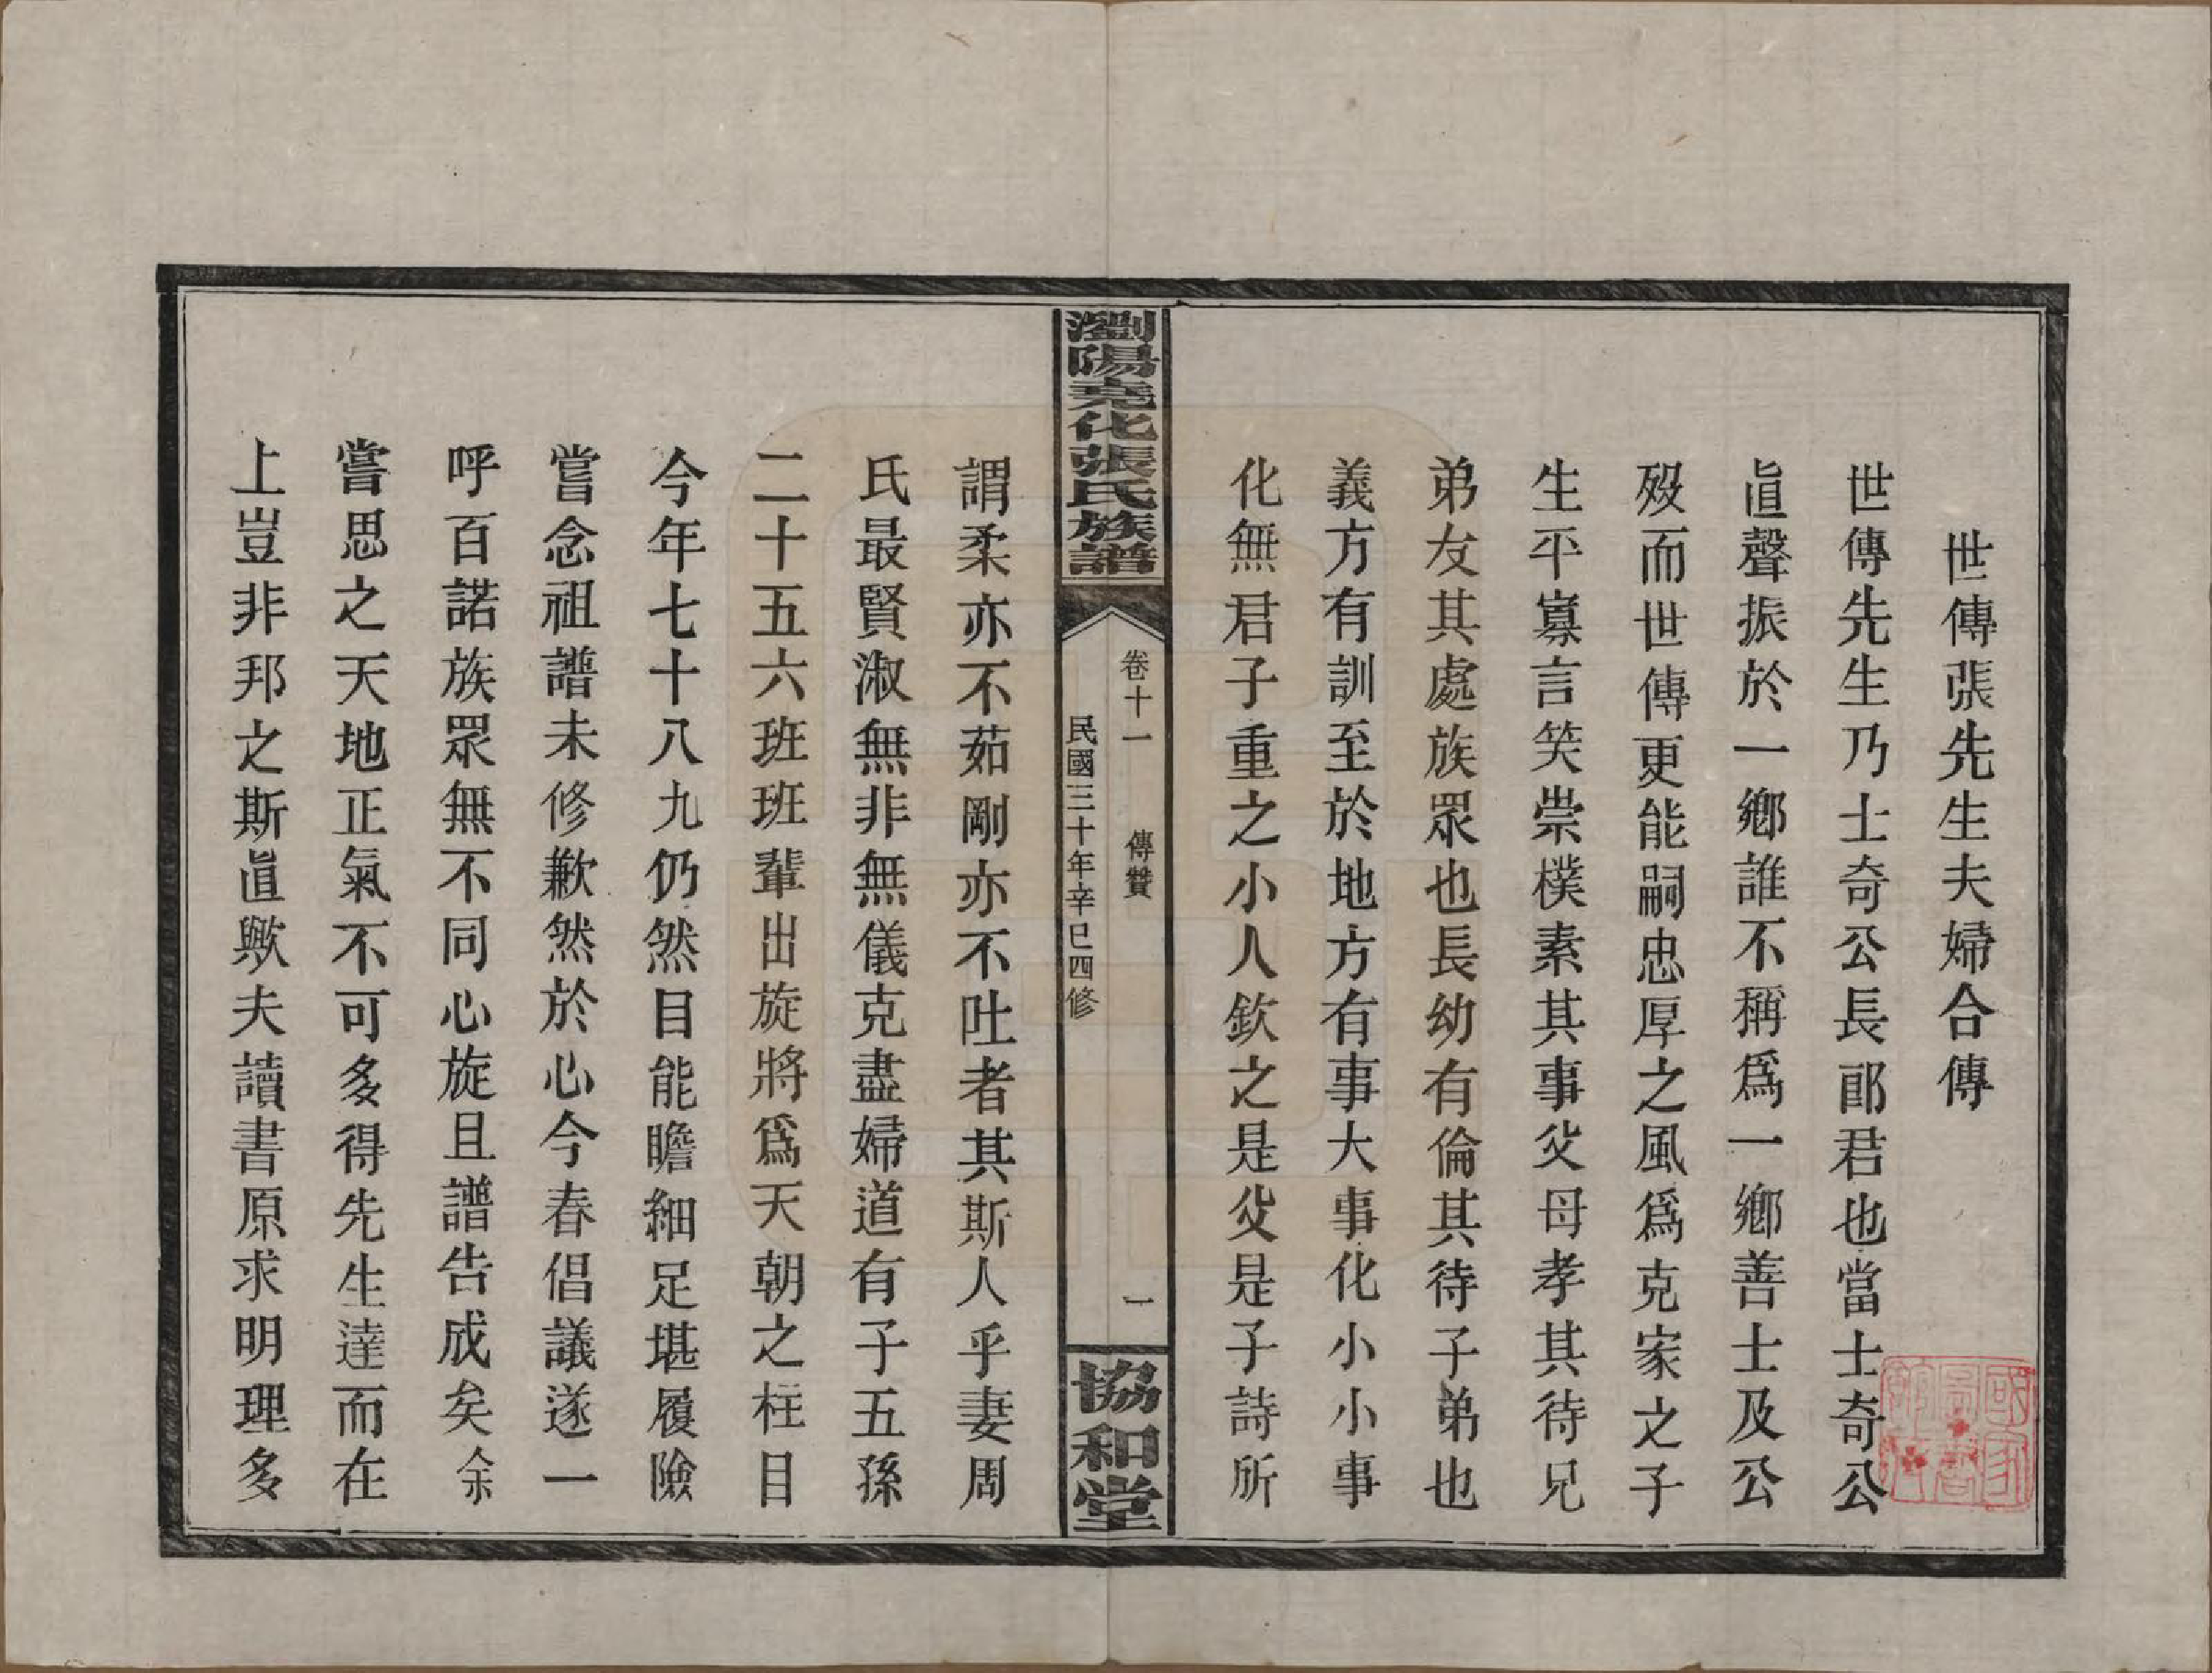 世傳張先生夫婦合傳
世傳先生乃士奇公長郎君也當士奇公
眞聲振於一鄉誰不稱爲一鄉善士及公
歿而世傳更能嗣忠厚之風爲克家之子
生平寡言笑崇樸素其事父母孝其待兄
弟友其處族眾也長幼有倫其待子弟也
義方有訓至於地方有事大事化小小事
化無君子重之小人欽之是父是子詩所
瀏陽堯化張氏族譜
卷十一 傳贊 一
民國三十年辛巳四修
協和堂
謂柔亦不茹剛亦不吐者其斯人乎妻周
氏最賢淑無非無儀克盡婦道有子五孫
二十五六班班輩出旋將爲天朝之柱目
今年七十八九仍然目能瞻細足堪履險
嘗念祖譜未修歉然於心今春倡議遂一
呼百諾族眾無不同心旋且譜告成矣余
嘗思之天地正氣不可多得先生達而在
上豈非邦之斯眞歟夫讀書原求明理多